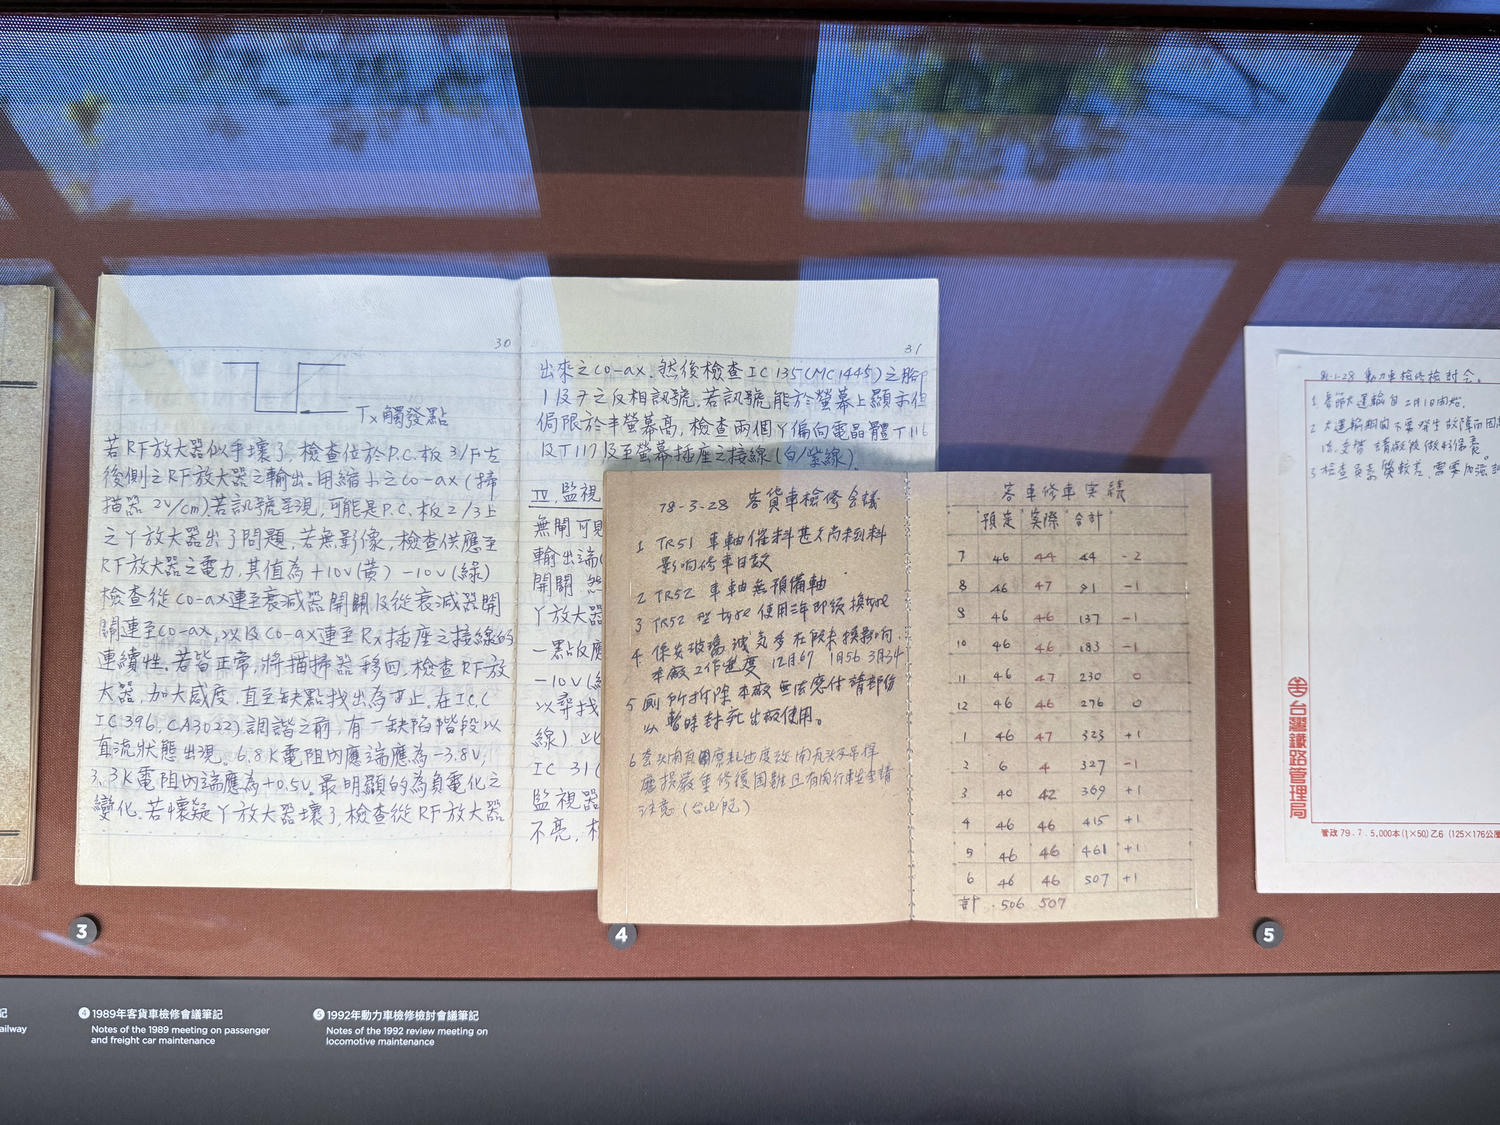 30
Tx 觸發點
若RF放大器似乎壞了，檢查位於P.C.板3/F左
後側之RF放大器之輸出．用縮小之co-ax（掃
描器2V/cm）若訊號呈現，可能是P.C.板2/3上
之丫放大器出了問題，若無影像，檢查供應至
RF放大器之電力，其值為+10V(黃) -10V(綠)
檢查從co-ax連至衰減器開關及從衰減器開
關連至co-ax，以及co-ax連至Rx插座之接線的
連續性．若皆正常，將描掃器移回，檢查RF放
大器，加大感度，直至缺點找出為止．在I.C.(
IC 396, CA3022)調諧之前，有一缺陷階段以
直流狀態出現。6.8K電阻內應端應為-3.8V，
3.3K電阻內端應為+0.5V。最明顯的為負電化之
變化．若懷疑丫放大器壞了，檢查從RF放大器
31
出來之co-ax．然後檢查IC 135(MC1445)之腳
1及7之反相訊號．若訊號能於螢幕上顯示但
侷限於半螢幕高，檢查兩個丫偏向電晶體T116
及T117及至螢幕插座之接線(白/紫線)．
IV.監視
無閘可見
輸出端(
開關 然
丫放大器
一點反應
-10V(綠
以尋找
線）此
IC 31(
監視器
不亮，
78-3-28 客貨車檢修會議
1 TR51 車軸催料甚久尚未到料
影响修車日數
2 TR52 車軸無預備軸
3 TR52 型 使用三年即須換
4 保安玻璃 多 在 未換影响
本廠工作進度 12月67 1月56 3月34
5 廁所拆除本廠無法應付請部份
以暫時封死出廠使用。
6
磨損嚴重修復困難且有 行車 請
注意（台北段）
客車修車実績
預定 実際 合計
7 46 44 44 -2
8 46 47 91 -1
9 46 46 137 -1
10 46 46 183 -1
11 46 47 230 0
12 46 46 276 0
1 46 47 323 +1
2 6 4 327 -1
3 40 42 369 +1
4 46 46 415 +1
5 46 46 461 +1
6 46 46 507 +1
計 506 507
81-1-28 動力車檢修檢討会。
1 春節大運輸自2月1日開始．
2 大運輸期間不要發生故障而
請做好保養。
3 檢查員 需要加強
台灣鐵路管理局
管政 79．7．5,000本(1×50)乙6 (125×176公厘
3
4
5
記
ailway
4 1989年客貨車檢修會議筆記
Notes of the 1989 meeting on passenger
and freight car maintenance
5 1992年動力車檢修檢討會議筆記
Notes of the 1992 review meeting on
locomotive maintenance